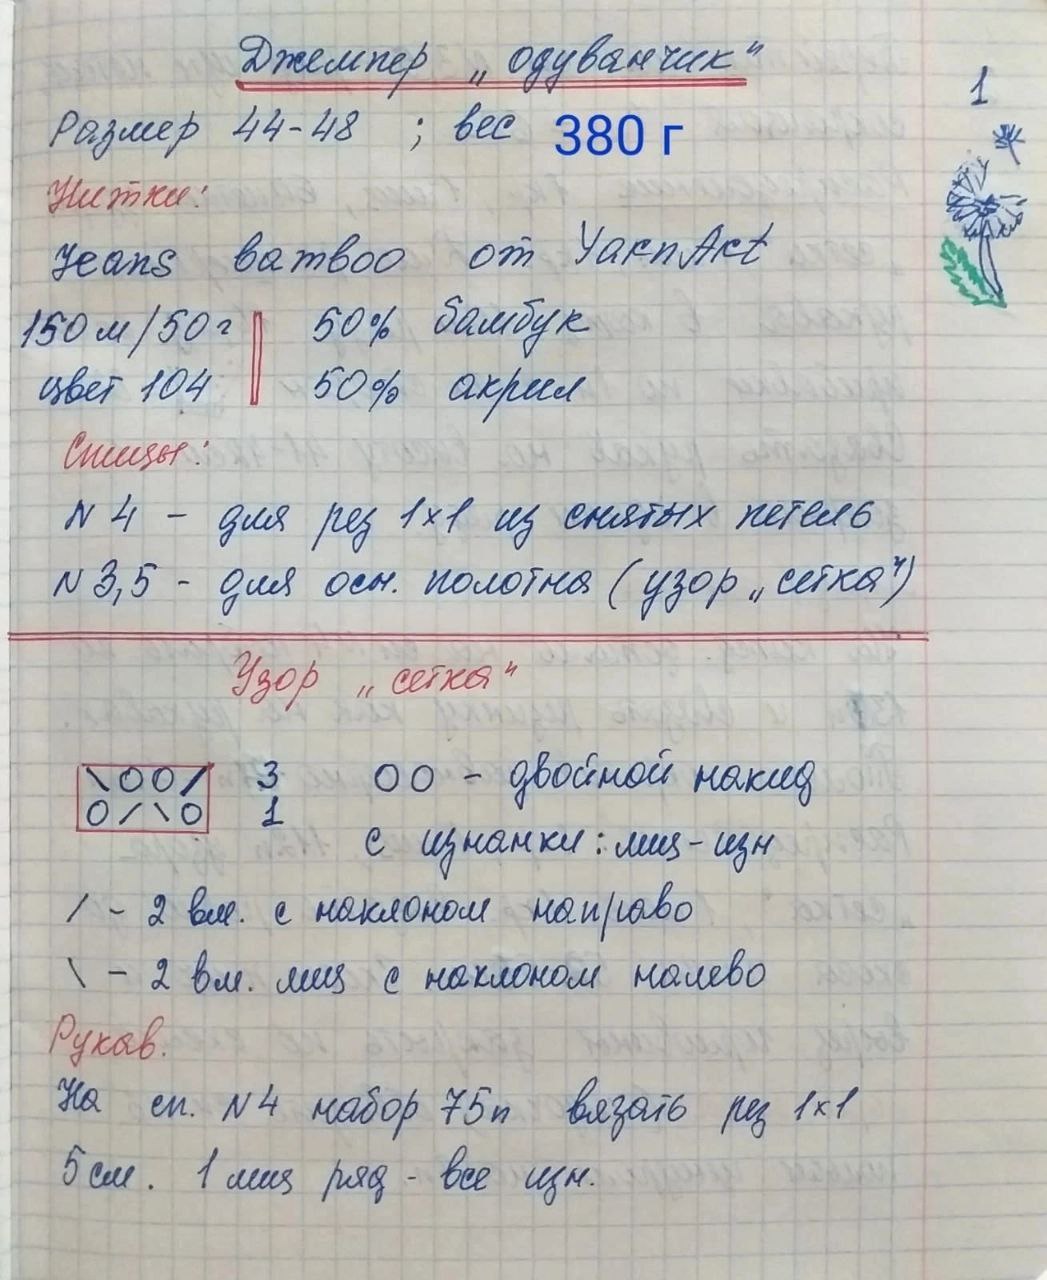 Джемпер „одуванчик"
1
Размер 44-48 ; вес 380 г
Нитки:
Jeans bamboo от YarnArt
150 м/50 г | 50% бамбук
цвет 104 | 50% акрил
Спицы:
N 4 - для рез 1×1 из снятых петель
N 3,5 - для осн. полотна (узор „сетка")
Узор „сетка"
\OO/ 3 OO - двойной накид
O/\O 1
с изнанки: лиц-изн
/ - 2 вм. с наклоном направо
\ - 2 вм. лиц с наклоном налево
Рукав.
На сп. N4 набор 75п вязать рез 1×1
5 см. 1 лиц ряд - все изн.